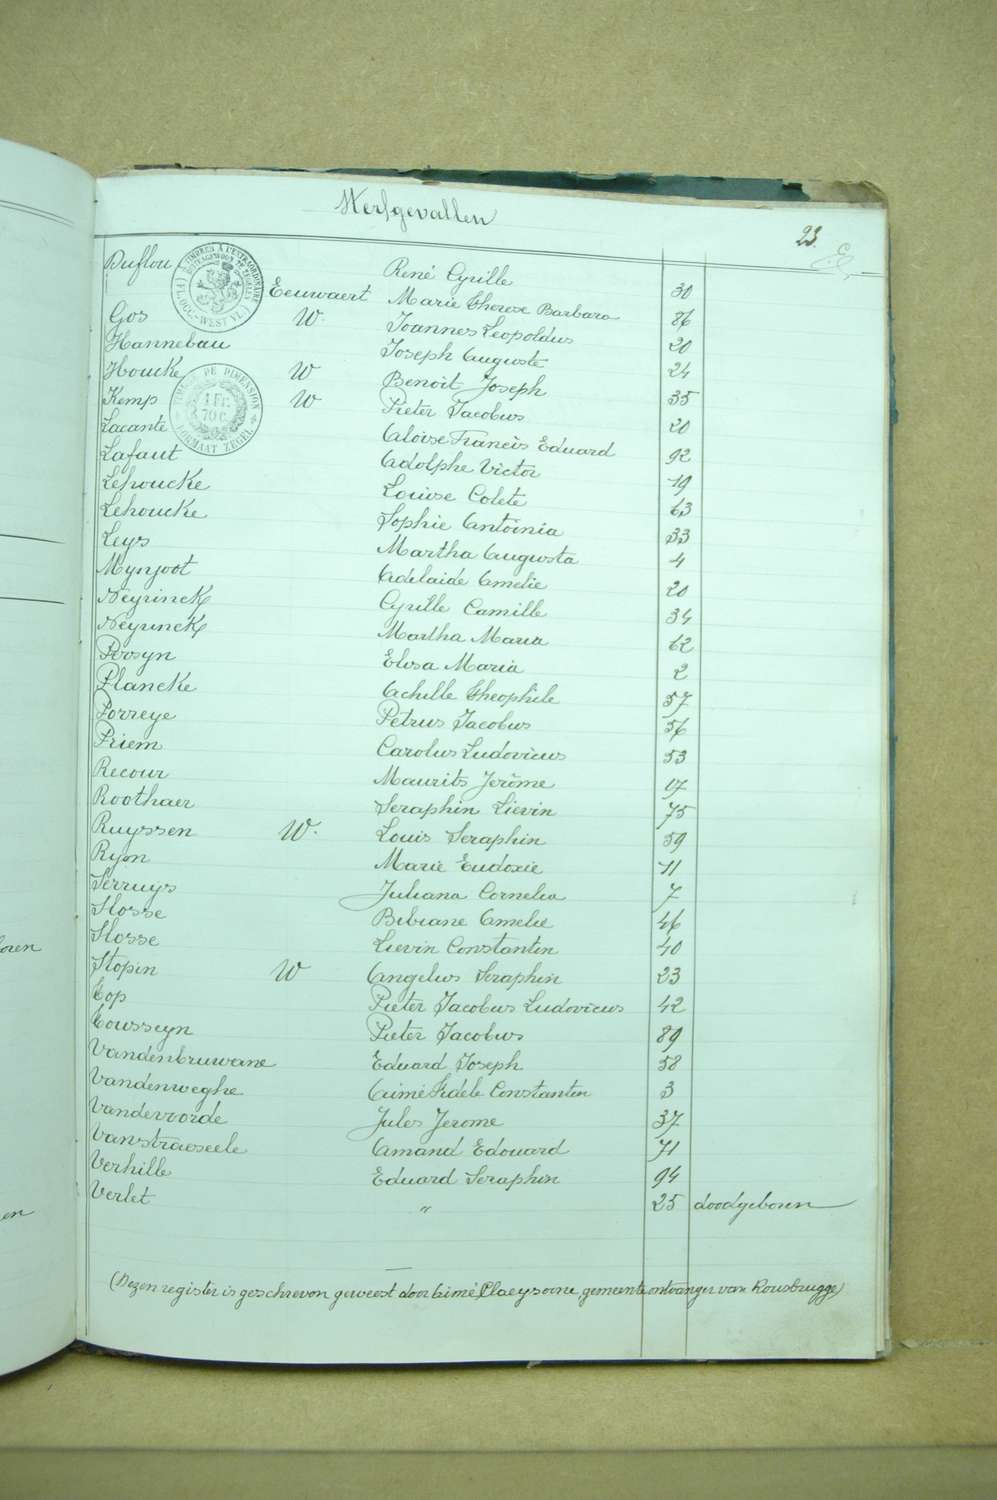 Sterfgevallen
23.
Duflou René Cyrille 30
Eeuwaert Marie Therese Barbara 86
Gos W. Joannes Leopoldus 20
Hannebau Joseph Auguste 24
Houcke W Benoit Joseph 35
Kemp W Pieter Jacobus 20
Lacante Aloise Francis Eduard 92
Lafaut Adolphe Victor 19
Lehoucke Louise Colete 63
Lehoucke Sophie Antoinia 33
Leys Martha Augusta 4
Mynjoot Adelaide Amelie 20
Neyrinck Cyrille Camille 34
Neyrinck Martha Maria 62
Persyn Elisa Maria 2
Plancke Achille Theophile 57
Porreye Petrus Jacobus 56
Priem Carolus Ludovicus 53
Recour Maurits Jerôme 17
Roothaer Seraphin Lievin 75
Ruyssen W. Louis Seraphin 59
Ryon Marie Eudoxie 11
Serruys Juliana Cornelia 7
Slosse Bibiane Amelie 46
Slosse Lievin Constantin 40
Stopin W Angelus Seraphin 23
Top Pieter Jacobus Ludovicus 42
Tousseyn Pieter Jacobus 89
Vandenbruwane Eduard Joseph 58
Vandenweghe Aimé Fidele Constantin 3
Vandevoorde Jules Jerome 37
Vanstraeseele Amand Edouard 71
Verhille Eduard Seraphin 94
Verlet " 25 doodgeboren
(Dezen register is geschreven geweest door Aimé Claeysoone gemeente ontvanger van Rousbrugge)
TIMBRES À L'EXTRAORDINAIRE
BUITENGEWOON TE ZEGELEN
(FL. OCC.-WEST VL.)
TIMBRE DE DIMENSION
1 FR. 70 C.
FORMAAT ZEGEL
boren
en